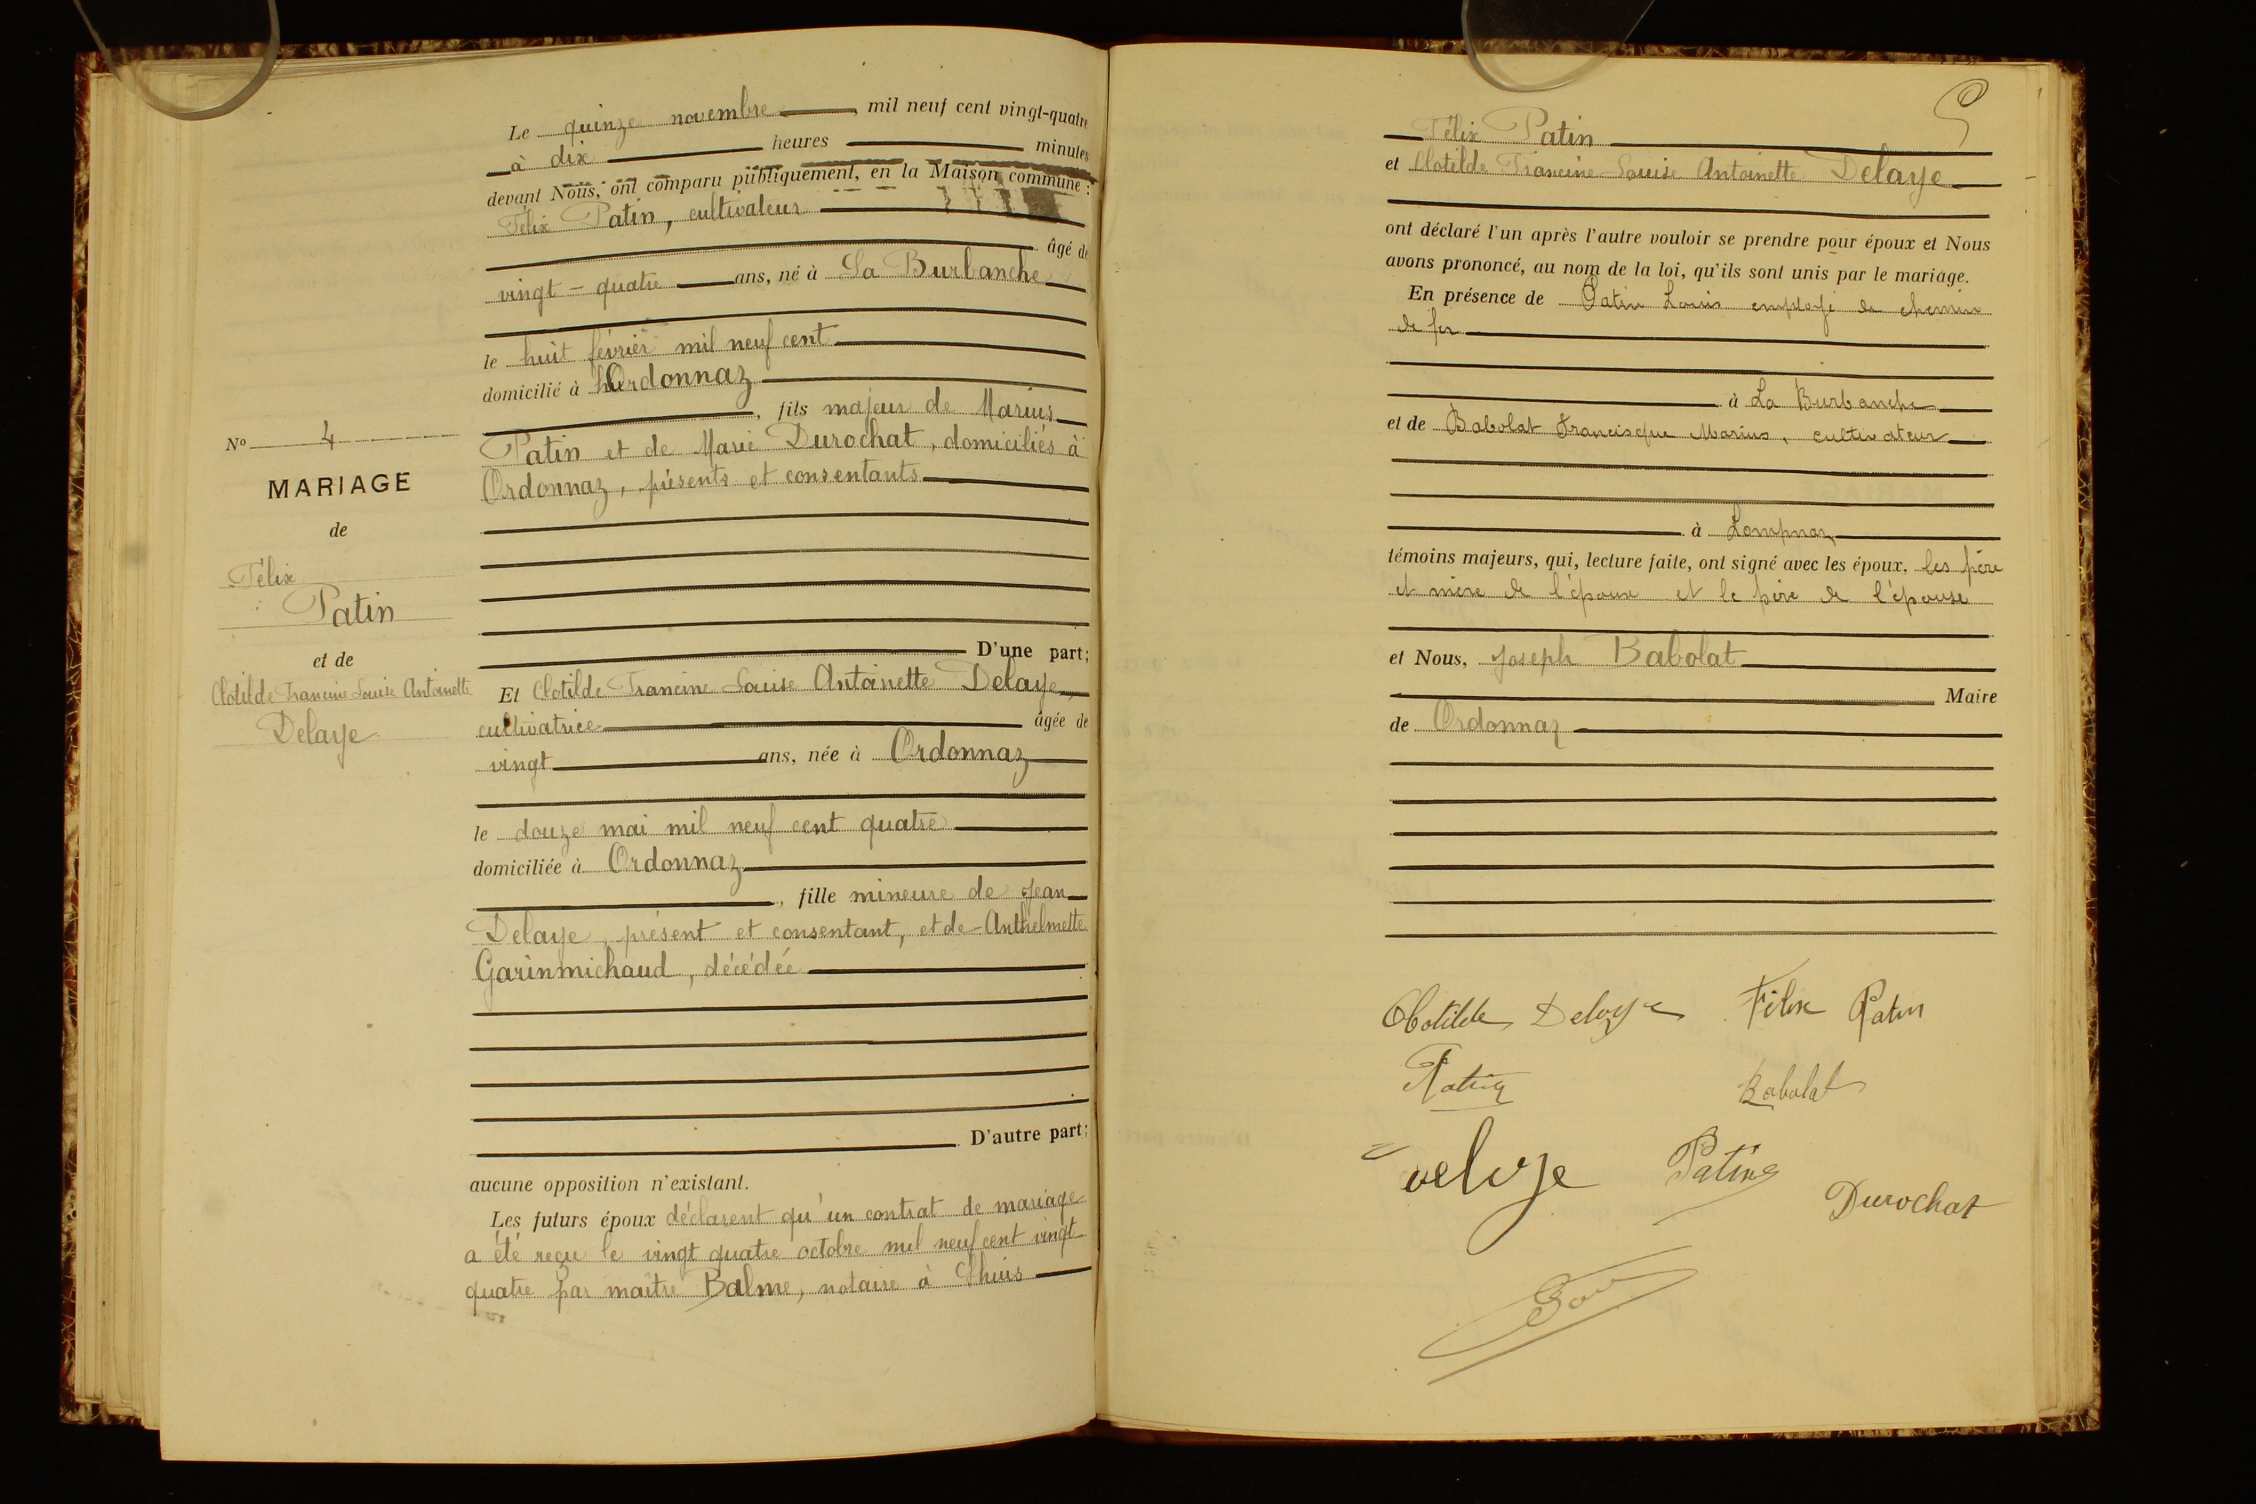 Le quinze novembre, mil neuf cent vingt-quatre
à dix heures minutes
devant Nous, ont comparu publiquement, en la Maison commune :
Félix Patin, cultivateur
âgé de
vingt-quatre ans, né à La Burbanche
le huit février mil neuf cent
domicilié à Ordonnaz
, fils majeur de Marius
Patin et de Marie Durochat, domiciliés à
Ordonnaz, présents et consentants
D'une part;
Et Clotilde Francine Louise Antoinette Delaye,
cultivatrice âgée de
vingt ans, née à Ordonnaz
le douze mai mil neuf cent quatre
domiciliée à Ordonnaz
, fille mineure de Jean
Delaye, présent et consentant, et de Anthelmette
Garinmichaud, décédée
D'autre part;
aucune opposition n'existant.
Les futurs époux déclarent qu'un contrat de mariage
a été reçu le vingt quatre octobre mil neuf cent vingt
quatre par maître Balme, notaire à Lhuis
No 4
MARIAGE
de
Félix
Patin
et de
Clotilde Francine Louise Antoinette
Delaye
5
Félix Patin
et Clotilde Francine Louise Antoinette Delaye
ont déclaré l'un après l'autre vouloir se prendre pour époux et Nous
avons prononcé, au nom de la loi, qu'ils sont unis par le mariage.
En présence de Patin Louis employé de chemin
de fer
à La Burbanche
et de Babolat Francisque Marius, cultivateur
à Lompnaz
témoins majeurs, qui, lecture faite, ont signé avec les époux, les père
et mère de l'époux et le père de l'épouse
et Nous, Joseph Babolat
Maire
de Ordonnaz
Clotilde Delaye Félix Patin
Patin Babolat
Delaye Patin
Durochat